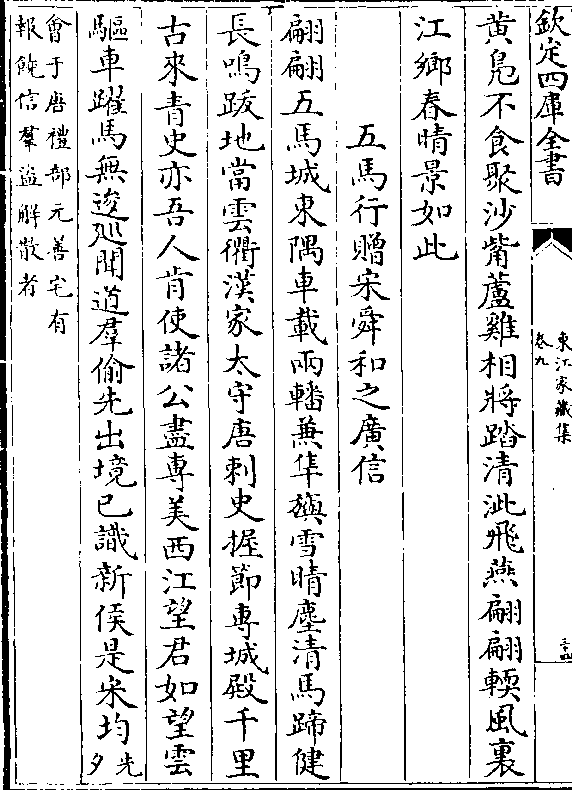 欽定四庫全書
東江家藏集
卷九
黄鳧不食聚沙觜蘆雞相將踏清泚飛燕翩翩輭風裏
江鄉春晴景如此
五馬行贈宋舜和之廣信
翩翩五馬城東隅車載兩轓兼隼旟雪晴塵清馬蹄健
長鳴跋地當雲衢漢家太守唐刺史握節專城殿千里
古來青史亦吾人肯使諸公盡専美西江望君如望雲
驅車躍馬無逡廵聞道羣偷先出境已識新侯是宋均先夕
會于唐禮部元善宅有
報饒信羣盗解散者